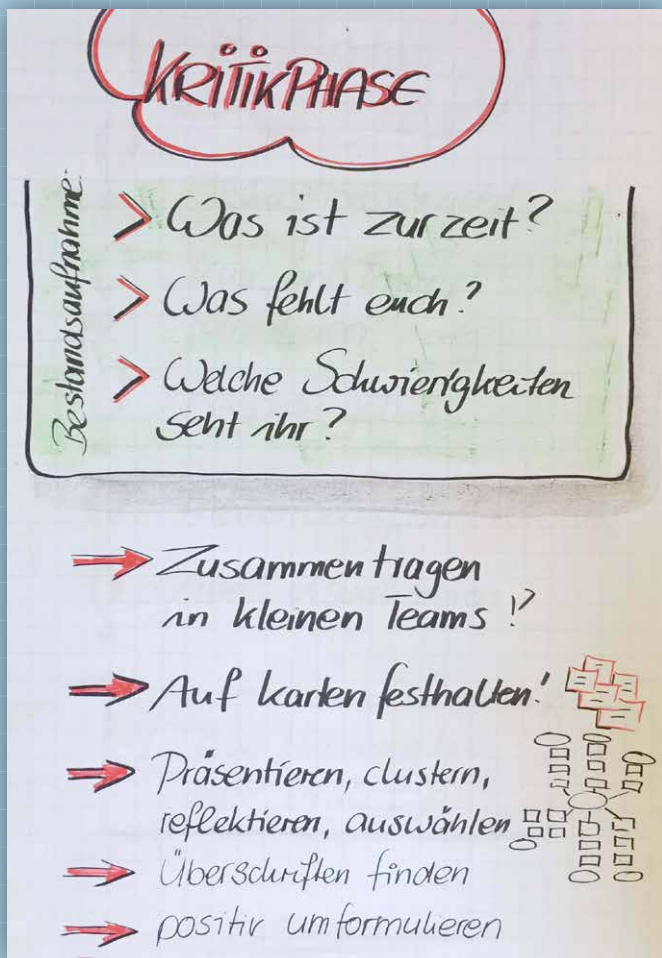 KRITIKPHASE
Bestandsaufnahme:
> Was ist zurzeit?
> Was fehlt euch?
> Welche Schwierigkeiten
seht ihr?
→ Zusammentragen
in kleinen Teams!?
→ Auf Karten festhalten!
→ Präsentieren, clustern,
reflektieren, auswählen
→ Überschriften finden
→ positiv umformulieren